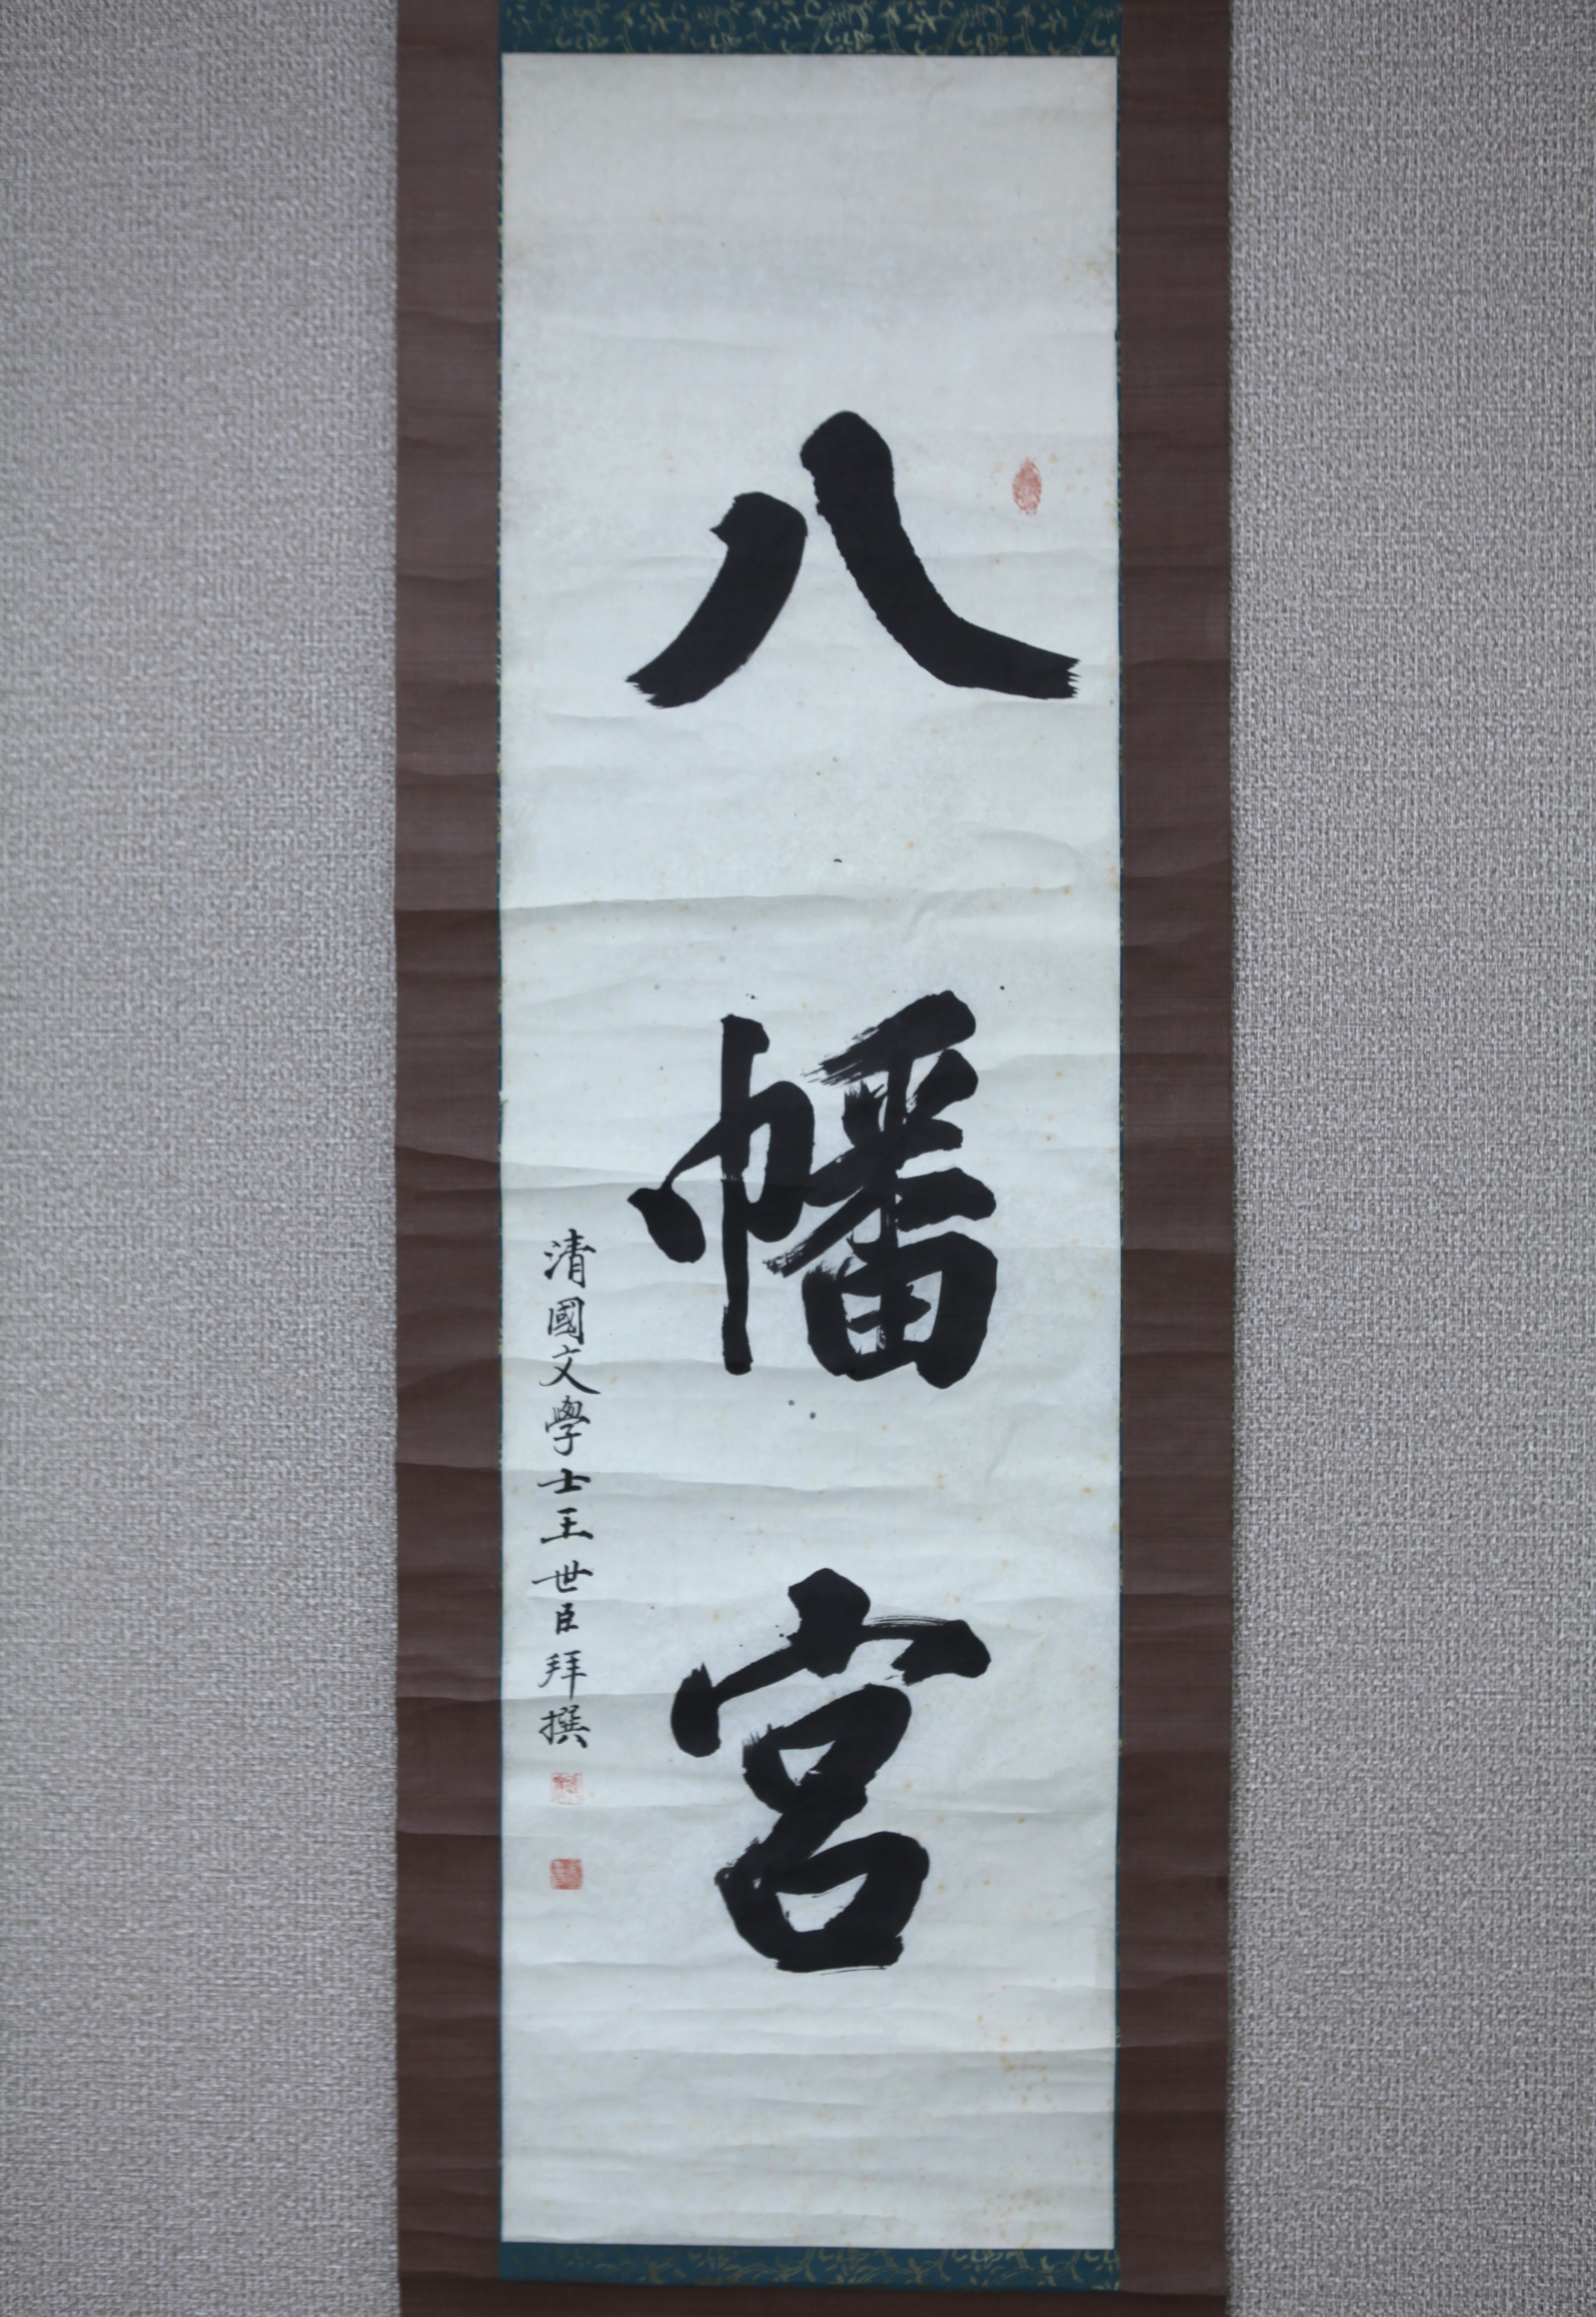 八幡宮
清國文學士王世臣拜撰